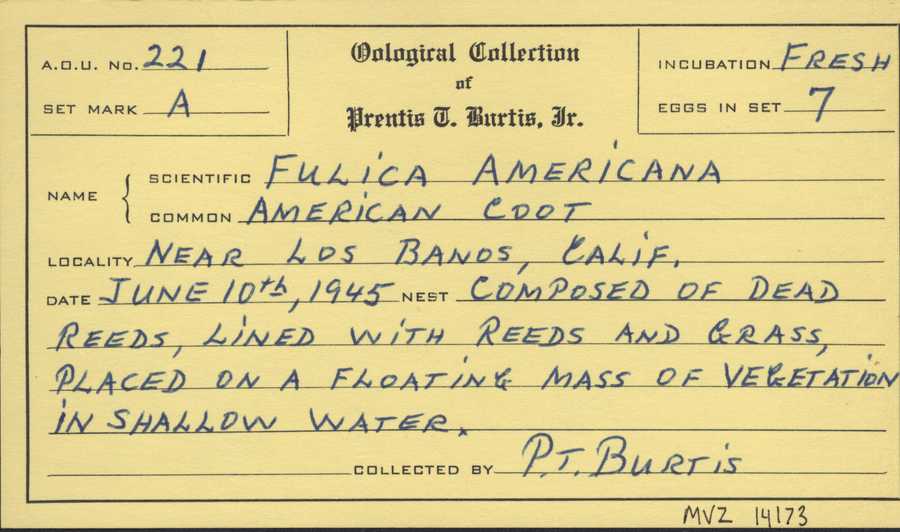 A.O.U. No. 221
SET MARK A
Oological Collection
of
Prentis T. Burtis, Jr.
INCUBATION FRESH
EGGS IN SET 7
NAME
SCIENTIFIC FULICA AMERICANA
COMMON AMERICAN COOT
LOCALITY NEAR LOS BANOS, CALIF.
DATE JUNE 10th, 1945 NEST COMPOSED OF DEAD
REEDS, LINED WITH REEDS AND GRASS,
PLACED ON A FLOATING MASS OF VEGETATION
IN SHALLOW WATER.
COLLECTED BY P.T. BURTIS
MVZ 14173